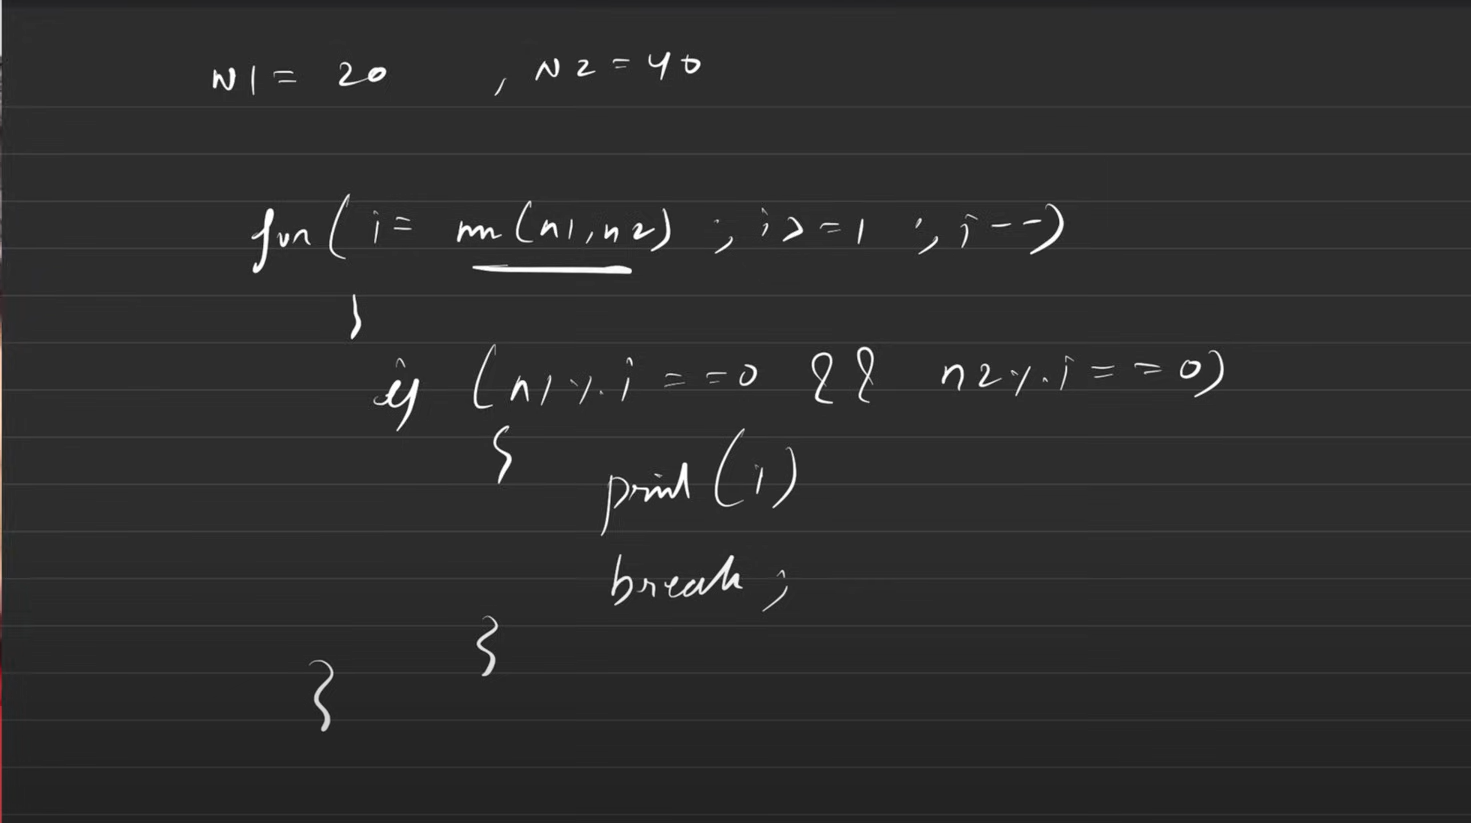 N1 = 20 , N2 = 40
for( i = min(n1,n2) ; i>=1 ; i--)
{
if (n1%i == 0 && n2%i == 0)
{
print(i)
break;
}
}